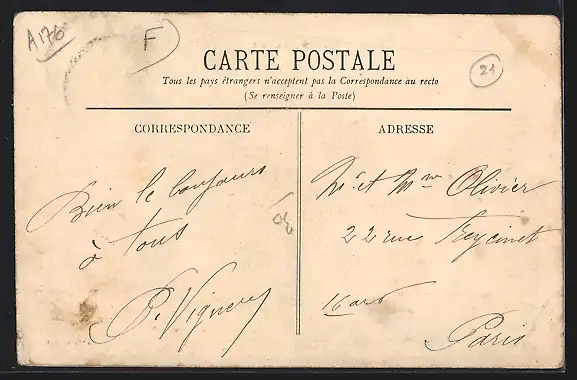 A176
F
21
CARTE POSTALE
Tous les pays étrangers n'acceptent pas la Correspondance au recto
(Se renseigner à la Poste)
CORRESPONDANCE
Bien le bonjour
à tous
P. Vignerey
ADRESSE
Mr et Mme Olivier
22 rue Freycinet
16 ard
Paris